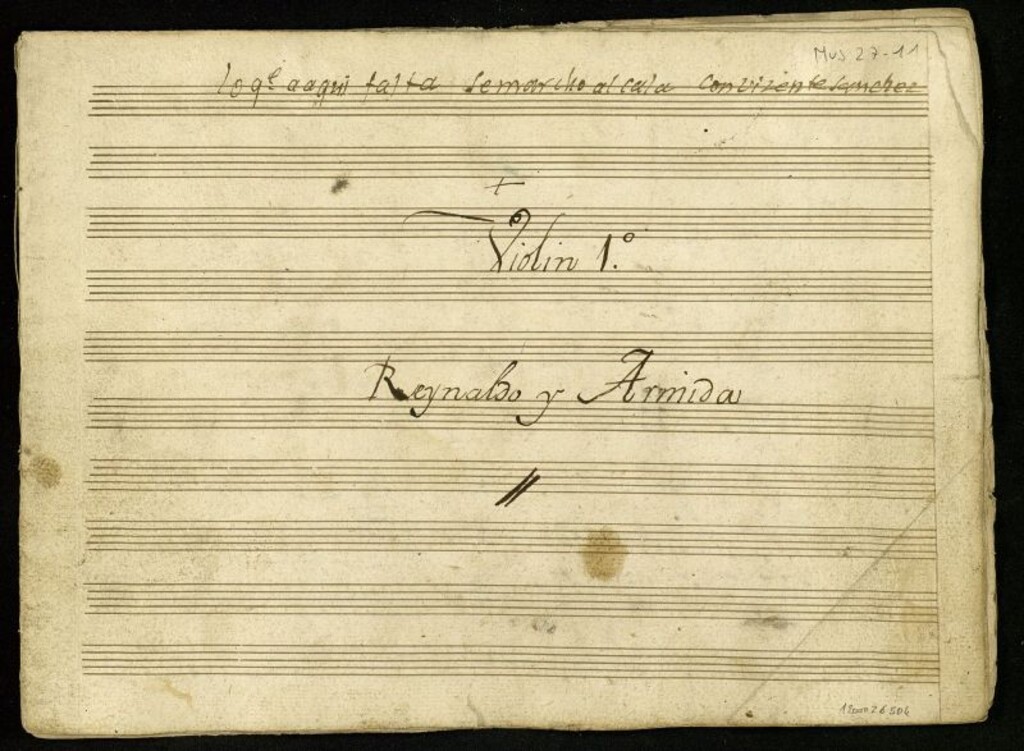 Mus 27-11
lo q.e aaqui falta semarcho alcala convizente sanchez
+
Violin 1.º
Reynaldo y Armida
//